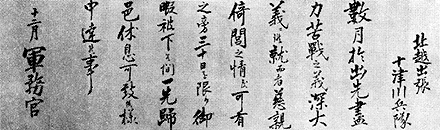 北越出張
十津川兵隊
数月於出先盡
力苦戦之義深大
義ニ候就而者慈親
倚閭之情も可有
之旁三十日を限り御
暇被下候間一ト先帰
邑休息可致候様
申達候事
十二月 軍務官